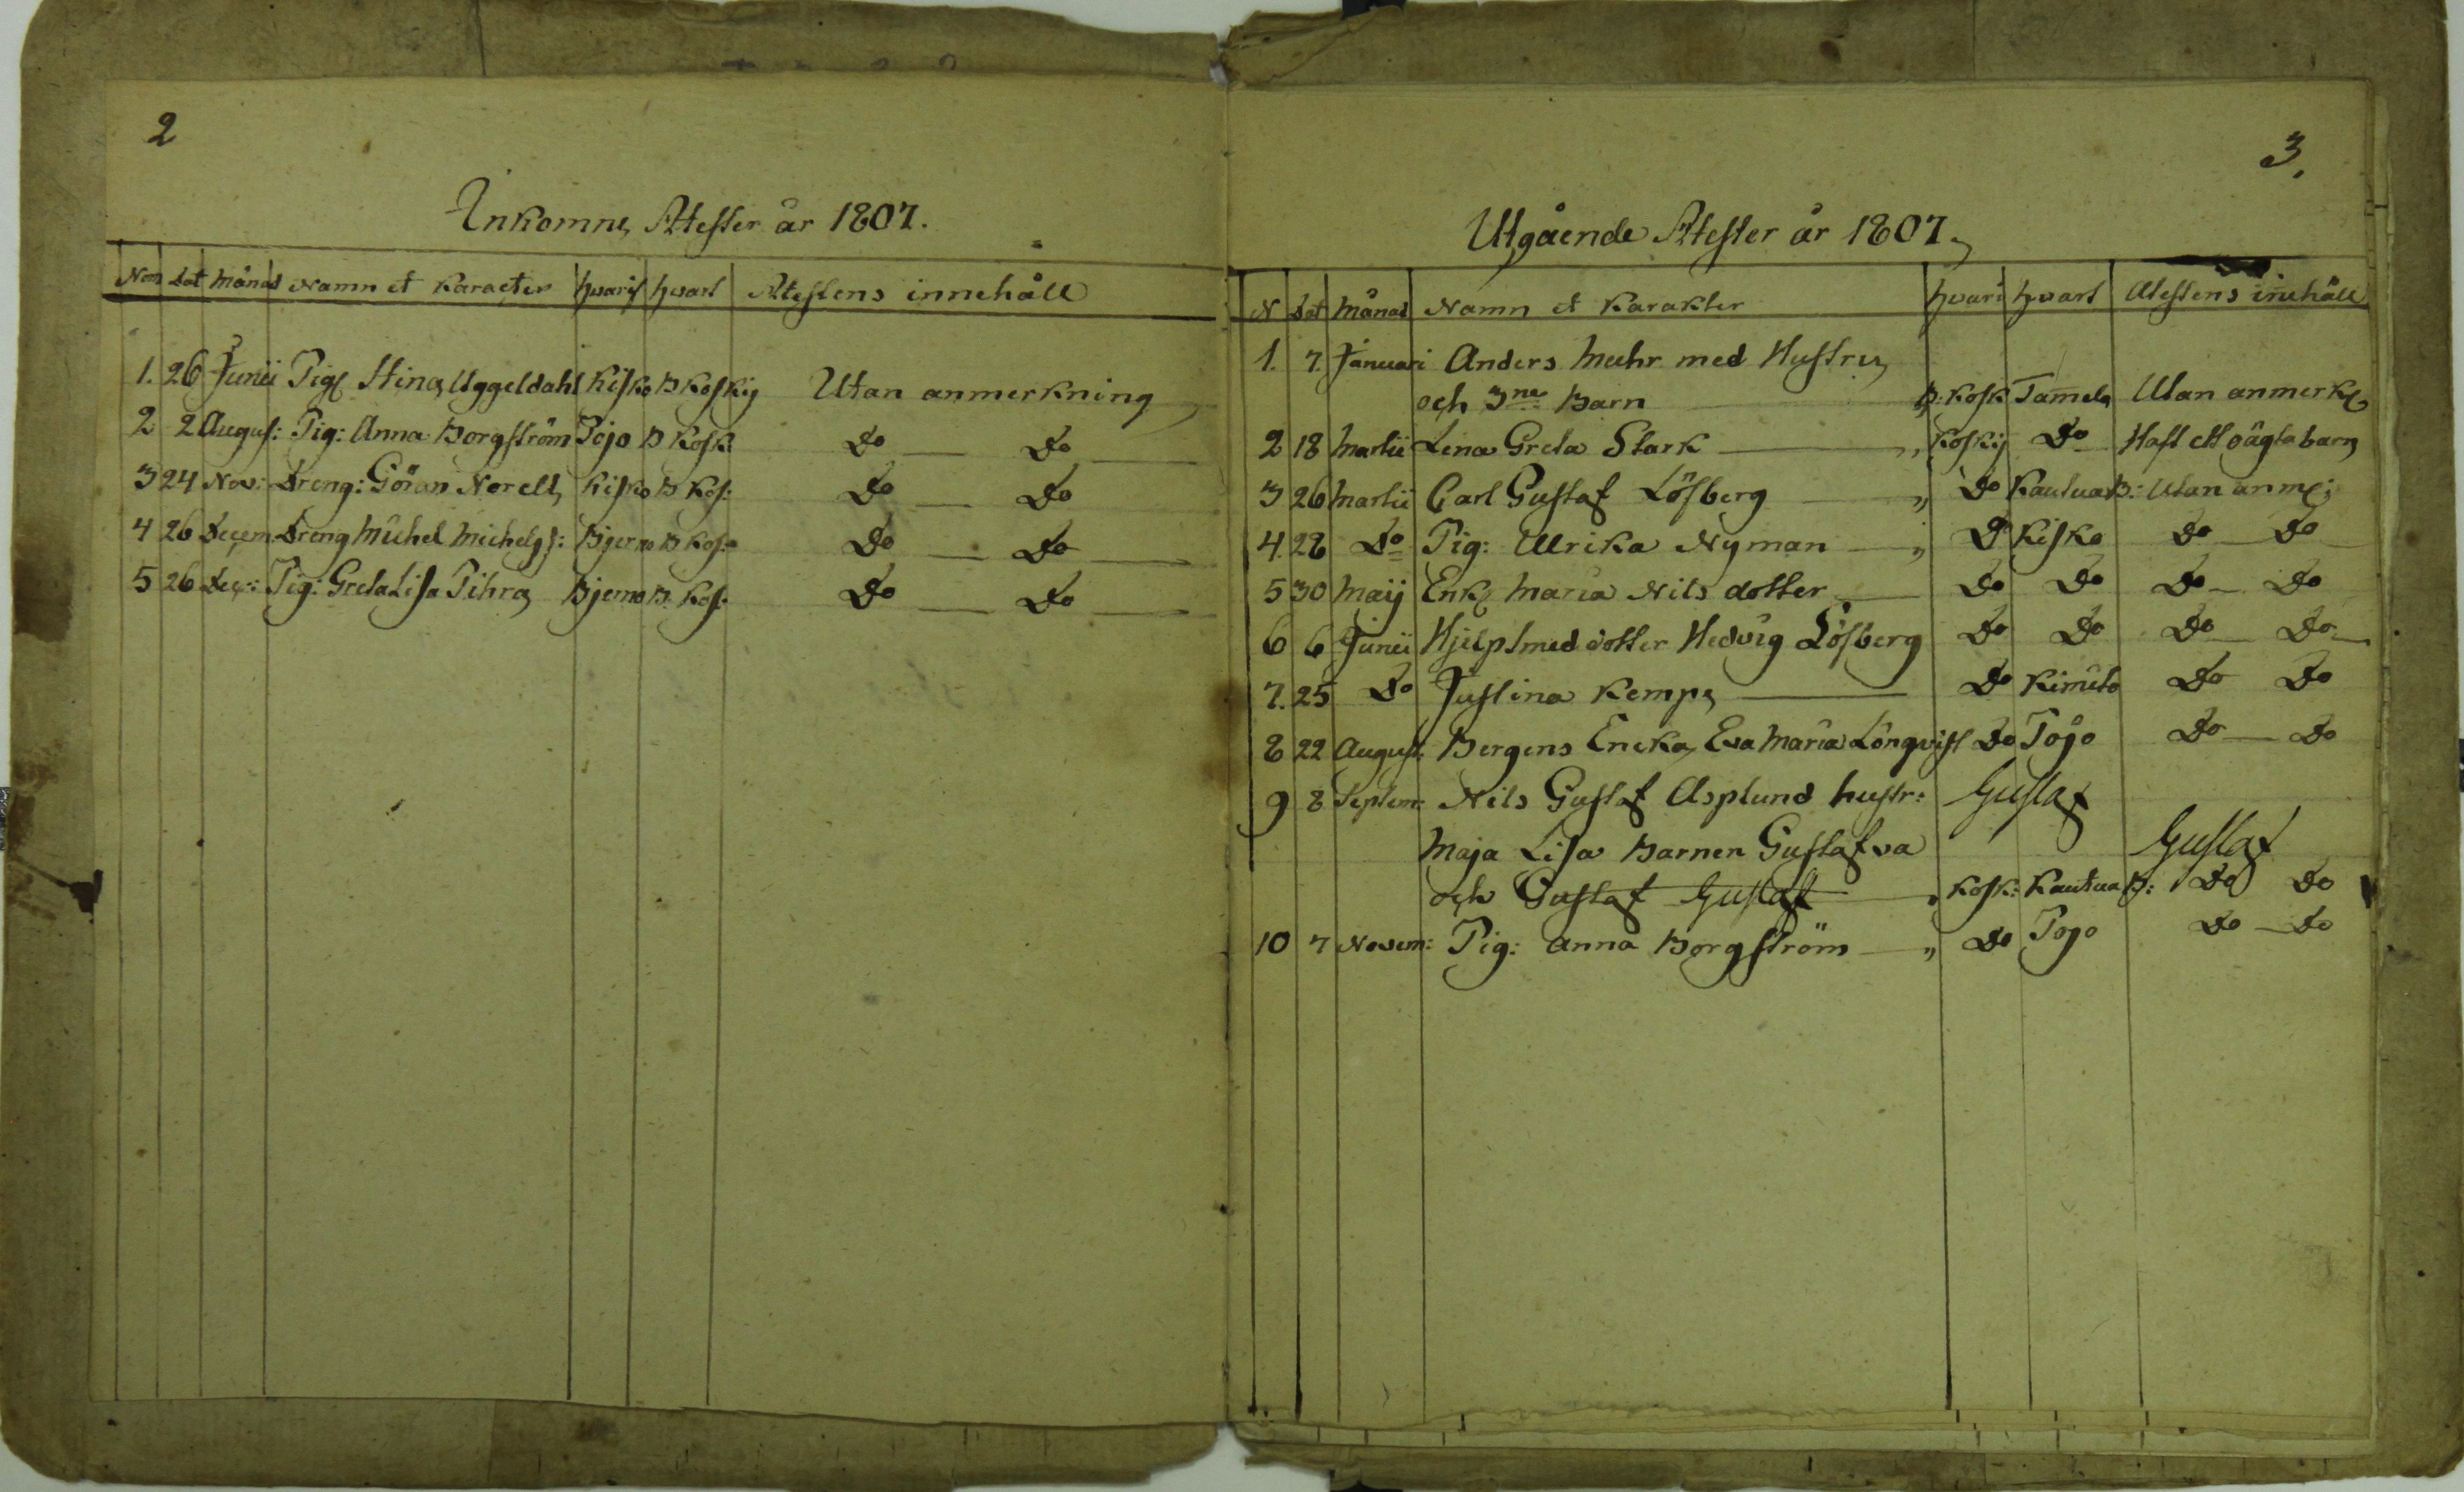 2
Inkomne Attester år 1807.
Nom dat månad Namn et Karacter hvarif hvart Attestens innehåll
1. 26 Junii Pig Stina Uggeldahl Kisko B Koskij Utan anmerkning
2 2 August: Pig: Anna Borgström Pojo B Kosk: Do Do
3 24 Nov: Dreng: Göran Norell Kisko B Kos: Do Do
4 26 Decem Dreng Michel Michelss: Bjerno B Kos: Do Do
5 26 Dec: Pig: Greta Lisa Pihra Bjerno B. Kos: Do Do
3.
Utgående Attester år 1807.
N dat månad Namn et Karakter hvari hvart Attestens inehåll
1. 7. Januari Anders Muhr med Hustru
och 3ne Barn B: Kosk Tamela Utan anmerk
2 18 Martii Lena Greta Stark Koskij Do Haft ett oägta barn
3 26 Martii Carl Gustaf Löfberg Do Kautua B: Utan anm:
4. 28 Do Pig: Ulrika Nyman Do Kisko Do Do
5 30 Maij Enk Maria Nils dotter Do Do Do Do
6 6 Junii Hjelpsmed dotter Hedvig Löfberg Do Do Do Do
7. 25 Do Justina Kempe Do Kimito Do Do
8 22 August: Bergens Encka Eva Maria Lönqvist Do Pojo Do Do
9 8 Septem: Nils Gustaf Asplund hustr: Gustaf
Maja Lisa Barnen Gustafva Gustaf
och Gustaf Gustaf Kosk: Kautua B: Do Do
10 7 Novem: Pig: Anna Borgström Do Pojo Do Do